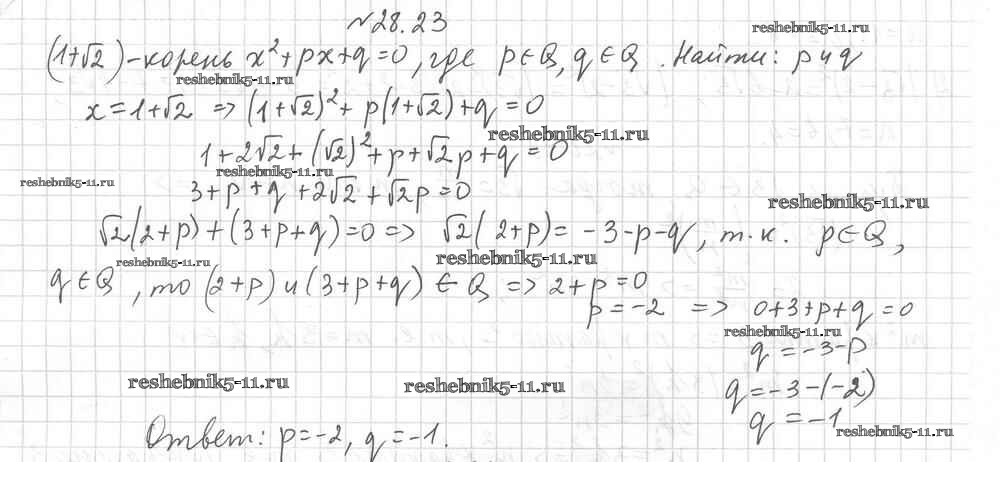 №28.23
reshebnik5-11.ru
(1+√2)-корень x²+px+q=0, где p∈Q, q∈Q. Найти: p и q
reshebnik5-11.ru
x=1+√2 => (1+√2)²+p(1+√2)+q=0
reshebnik5-11.ru
1+2√2+(√2)²+p+√2p+q=0
reshebnik5-11.ru
reshebnik5-11.ru
3+p+q+2√2+√2p=0
reshebnik5-11.ru
√2(2+p)+(3+p+q)=0=> √2(2+p)=-3-p-q, т.к. p∈Q,
reshebnik5-11.ru
reshebnik5-11.ru
q∈Q, то (2+p) и (3+p+q)∈Q => 2+p=0
p=-2 => 0+3+p+q=0
reshebnik5-11.ru
q=-3-p
reshebnik5-11.ru
reshebnik5-11.ru
q=-3-(-2)
q=-1
reshebnik5-11.ru
Ответ: p=-2, q=-1.